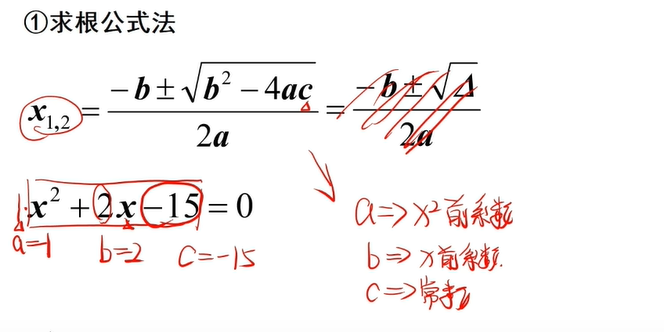 ①求根公式法
x₁,₂ = (-b ± √(b² - 4ac)) / 2a = (-b ± √Δ) / 2a
1·x² + 2x - 15 = 0
a=1 b=2 c=-15
a⇒x²前系数
b⇒x前系数.
c⇒常数